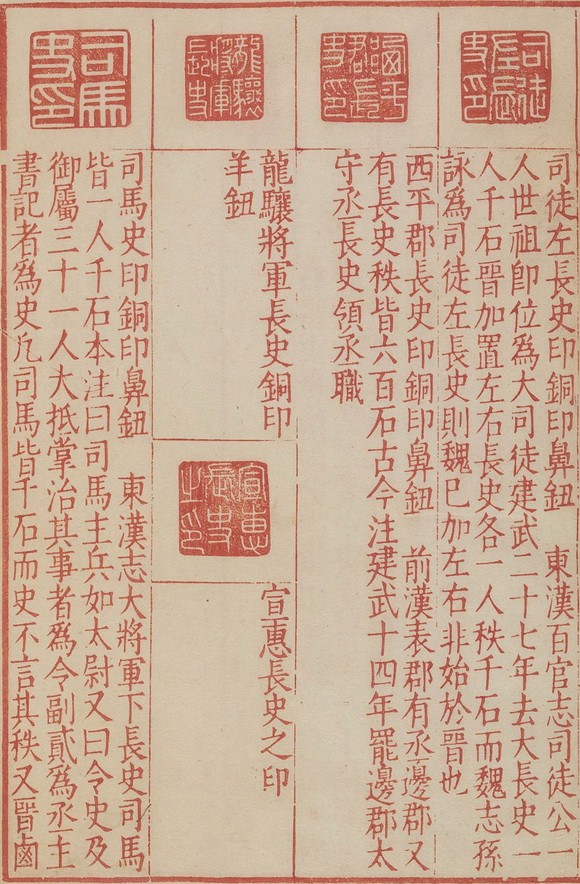 司徒
左長
史印
司徒左長史印銅印鼻鈕　東漢百官志司徒公一
人世祖即位為大司徒建武二十七年去大長史一
人千石晉加置左右長史各一人秩千石而魏志孫
詠為司徒左長史則魏已加左右非始於晉也
西平
郡長
史印
西平郡長史印銅印鼻鈕　前漢表郡有丞邊郡又
有長史秩皆六百石古今注建武十四年罷邊郡太
守丞長史領丞職
龍驤
將軍
長史
龍驤將軍長史銅印
羊鈕
宣惠
長史
之印
宣惠長史之印
司馬
史印
司馬史印銅印鼻鈕　東漢志大將軍下長史司馬
皆一人千石本注曰司馬主兵如太尉又曰令史及
御屬三十一人大抵掌治其事者為令副貳為丞主
書記者為史凡司馬皆千石而史不言其秩又晉鹵